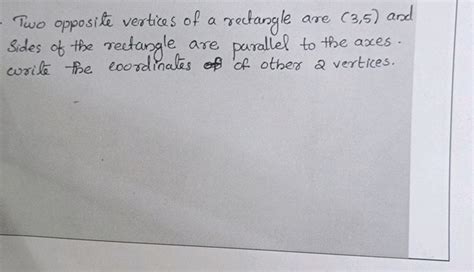 Two opposite vertices of a rectangle are (3,5) and
Sides of the rectangle are parallel to the axes.
write the coordinates of of other 2 vertices.